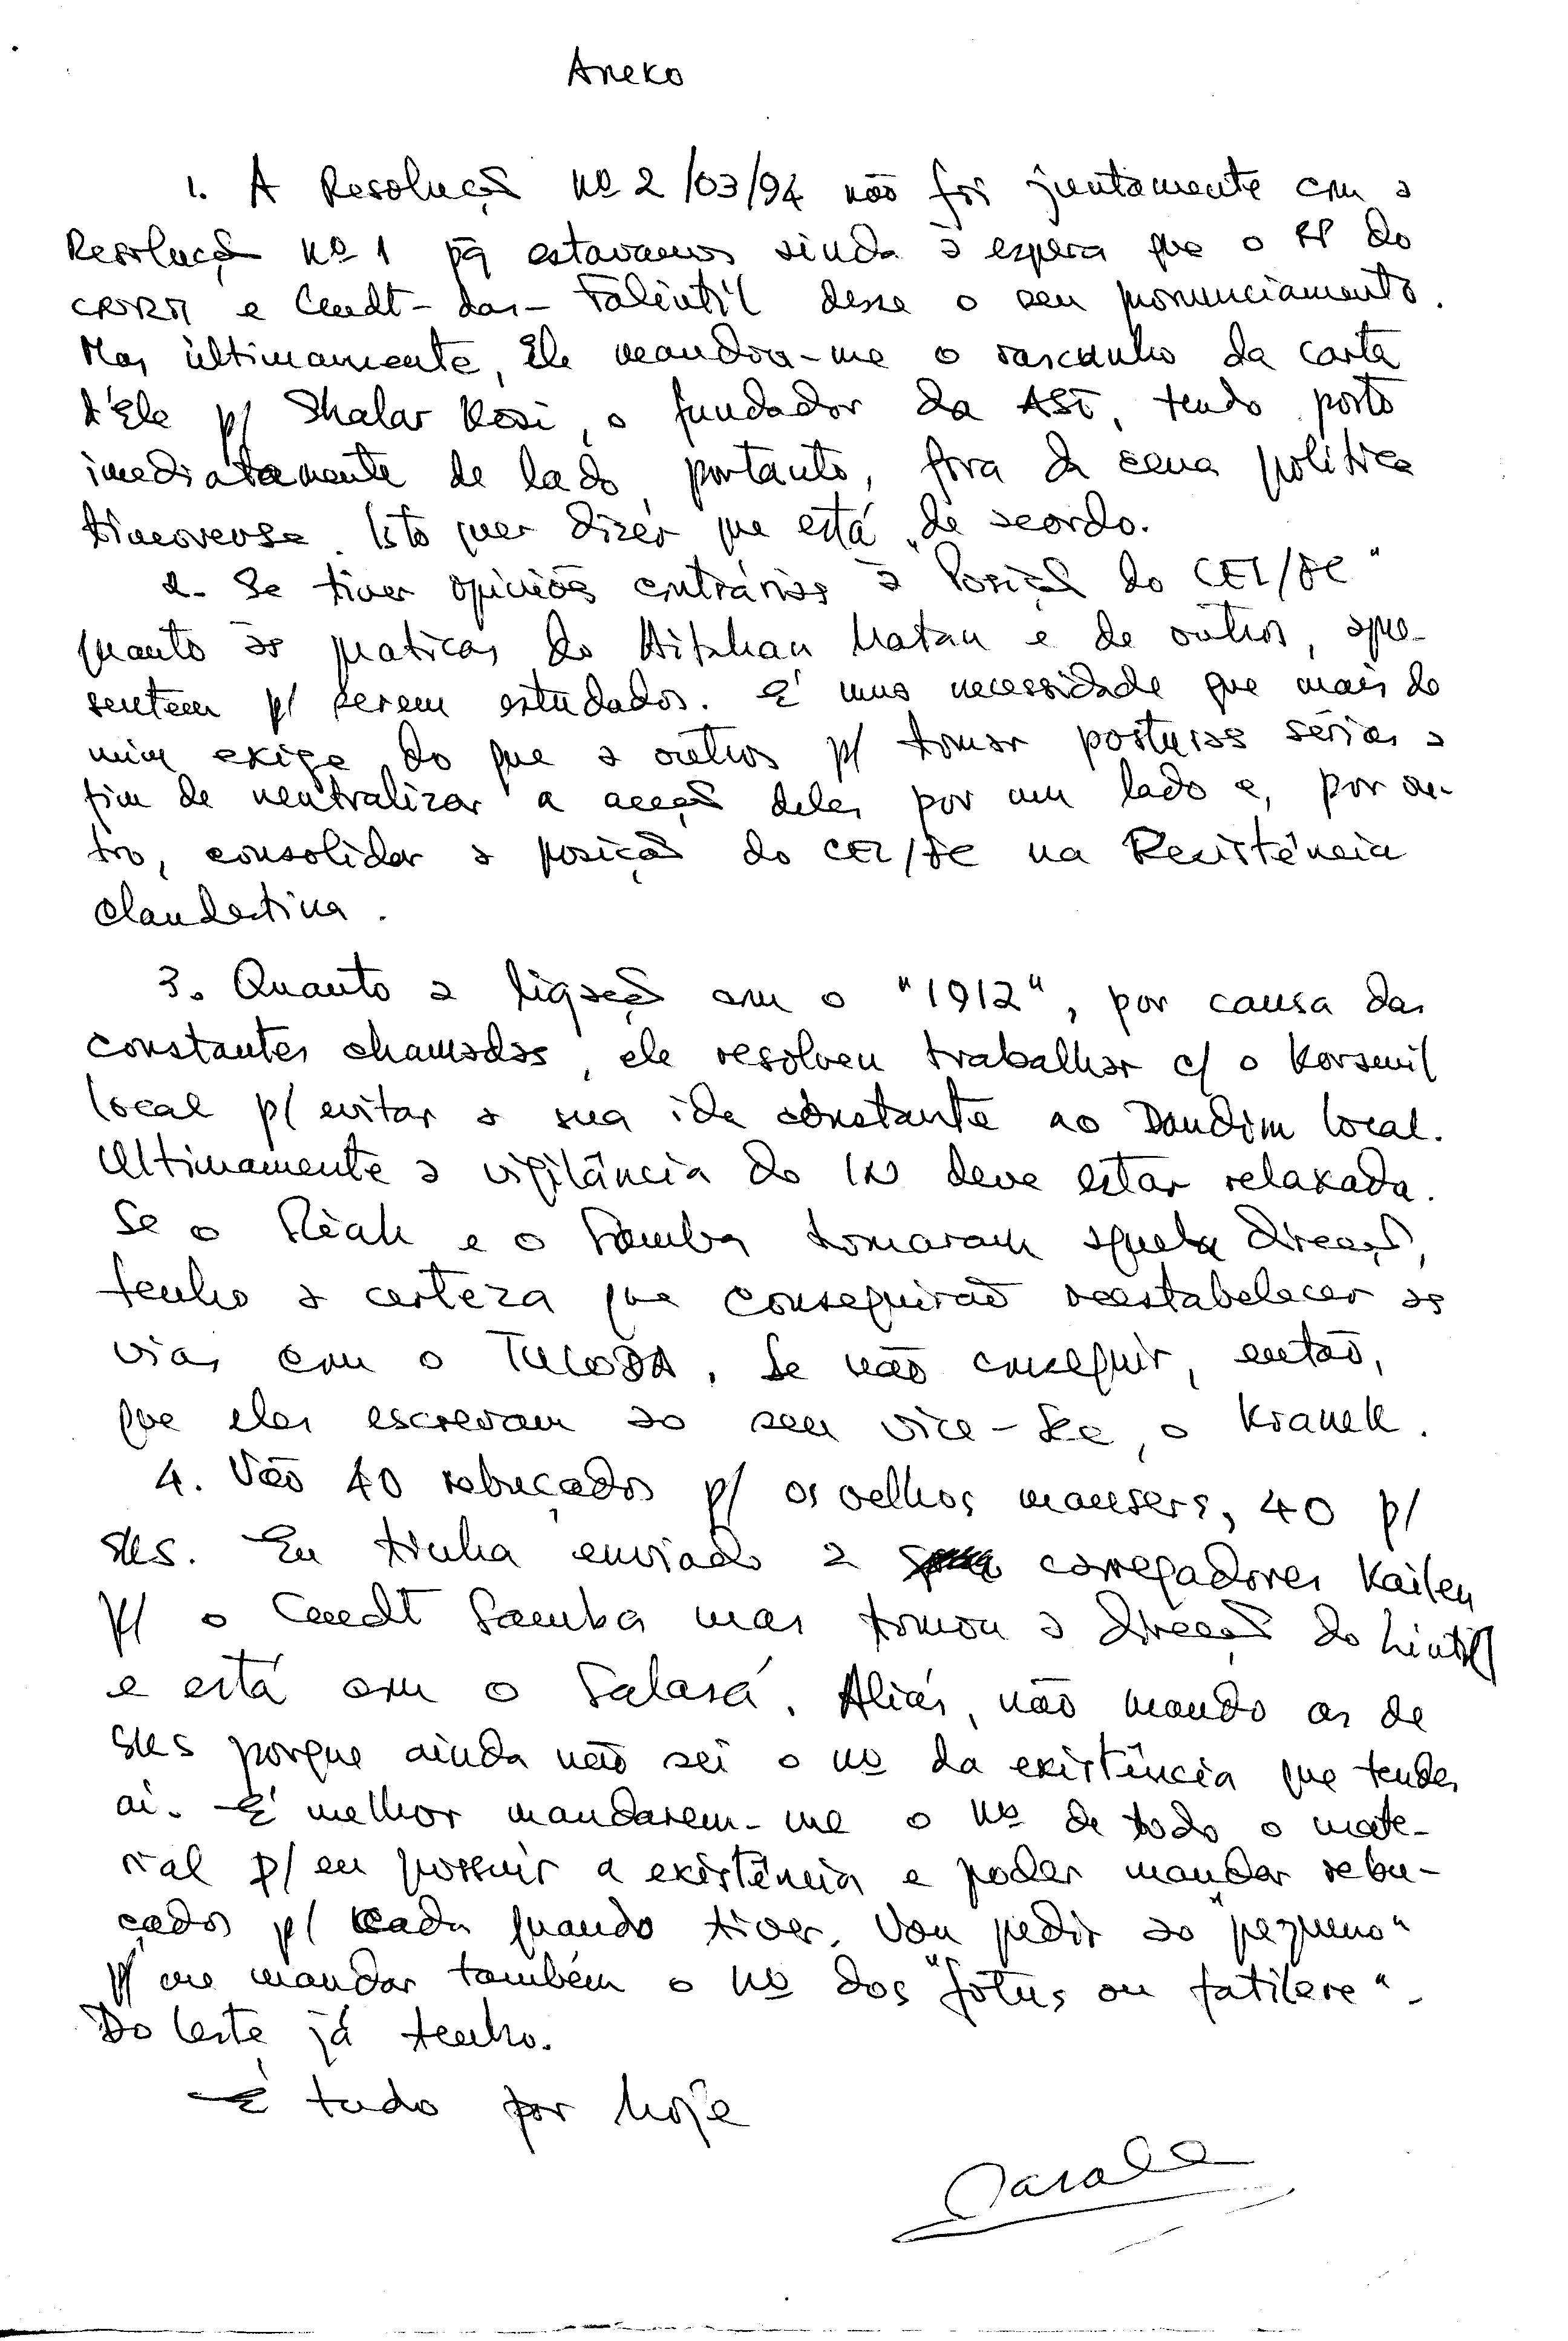 Aneko
1. A Resolução nº 2/03/94 não foi juntamente com a
Resolução nº 1 pq estavamos ainda à espera que o RP do
CRRN e Cmdt-das-Falintil desse o seu pronunciamento.
Mas ùltimamente, Ele mandou-me o rascunho da carta
d'Ele p/ Shalar Kosi, o fundador da AST, tendo posto
imediatamente de lado, portanto, fora da cena política
timorense. Isto quer dizer que está de acordo.
2. Se tiver opiniões contrárias à "Posição do CEL/FC"
quanto às praticas do Hitshan Matan e de outros, apre-
sentem p/ serem estudados. É uma necessidade que mais de
mim exige do que a outros p/ tomar posturas sérias a
fim de neutralizar a acção deles por um lado e, por ou-
tro, consolidar a posição do CEL/FC na Resistência
clandestina.
3. Quanto a ligação com o "1912", por causa das
constantes chamadas, ele resolveu trabalhar c/ o Koramil
local p/ evitar a sua ida constante ao Dandim local.
Ultimamente a vigilância do IN deve estar relaxada.
Se o Reak e o Samba tomaram aquela direcção,
tenho a certeza que conseguirão reestabelecer as
vias com o TULODA. Se não conseguir, então,
que eles escrevam ao seu vice-Sec, o Kranek.
4. Vão 40 rebuçados p/ os velhos mausers, 40 p/
sks. Eu tinha enviado 2 carregadores Kailen
p/ o Cmdt Samba mas tomou a direcção do Lintil
e está com o Salasá. Aliás, não mando os de
sks porque ainda não sei o nº da existência que tendes
aí. É melhor mandarem-me o nº de todo o mate-
rial p/ eu possuir a existência e poder mandar rebu-
çados p/ cada quando tiver. Vou pedir ao "pequeno"
p/ me mandar também o nº dos "fótus ou fatilere".
Do leste já tenho.
É tudo por hoje